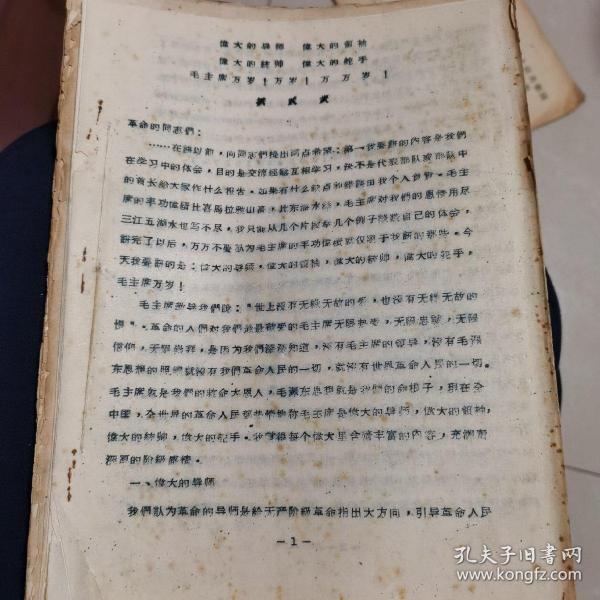 偉大的导师　偉大的領袖
偉大的統帅　偉大的舵手
毛主席万岁！万岁！万万岁！
革命的同志們：
……在講以前，向同志們提出两点希望：第一我要講的内容是我們
在学习中的体会，目的是交流經驗互相学习，决不是代表部队或部队中
的首长給大家作什么报告。如果有什么缺点和錯誤由我个人負責。毛主
席的丰功偉績比喜馬拉雅山高，比东海水深，毛主席对我們的恩情用尽
三江五湖水也写不尽，我只能从几个片段举几个例子談談自己的体会，
講完了以后，万万不要认为毛主席的丰功偉績就仅限于我講的那些。今
天我要講的是：偉大的导师，偉大的領袖，偉大的統帅，偉大的舵手，
毛主席万岁！
毛主席教导我們說："世上沒有无緣无故的爱，也沒有无緣无故的
恨"。革命的人們对我們最最敬爱的毛主席无限热爱，无限忠誠，无限
信仰，无限崇拜，是因为我們深深知道，沒有毛主席的領导，沒有毛澤
东思想的照耀就沒有我們革命人民的一切，就沒有世界革命人民的一切。
毛主席就是我們的救命大恩人，毛澤东思想就是我們的命根子，現在全
中国、全世界的革命人民都热情地称毛主席是偉大的导师，偉大的領袖，
偉大的統帅，偉大的舵手。我覚得每个偉大里含着丰富的内容，充滿着
深厚的阶級感情。
一、偉大的导师
我們认为革命的导师是給无产阶級革命指出大方向，引导革命人民
－1－
孔夫子旧书网
www.kongfz.com